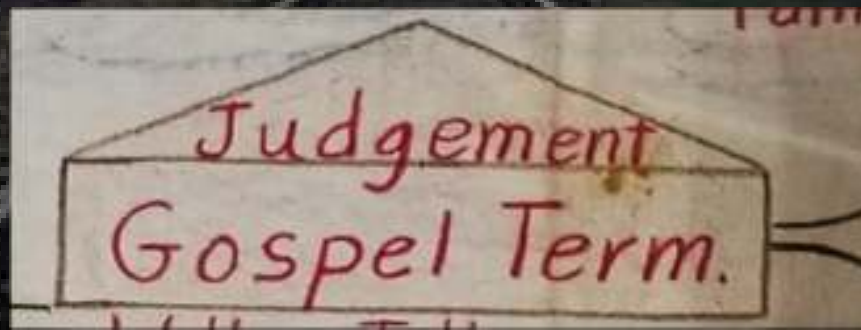 Judgement
Gospel Term.